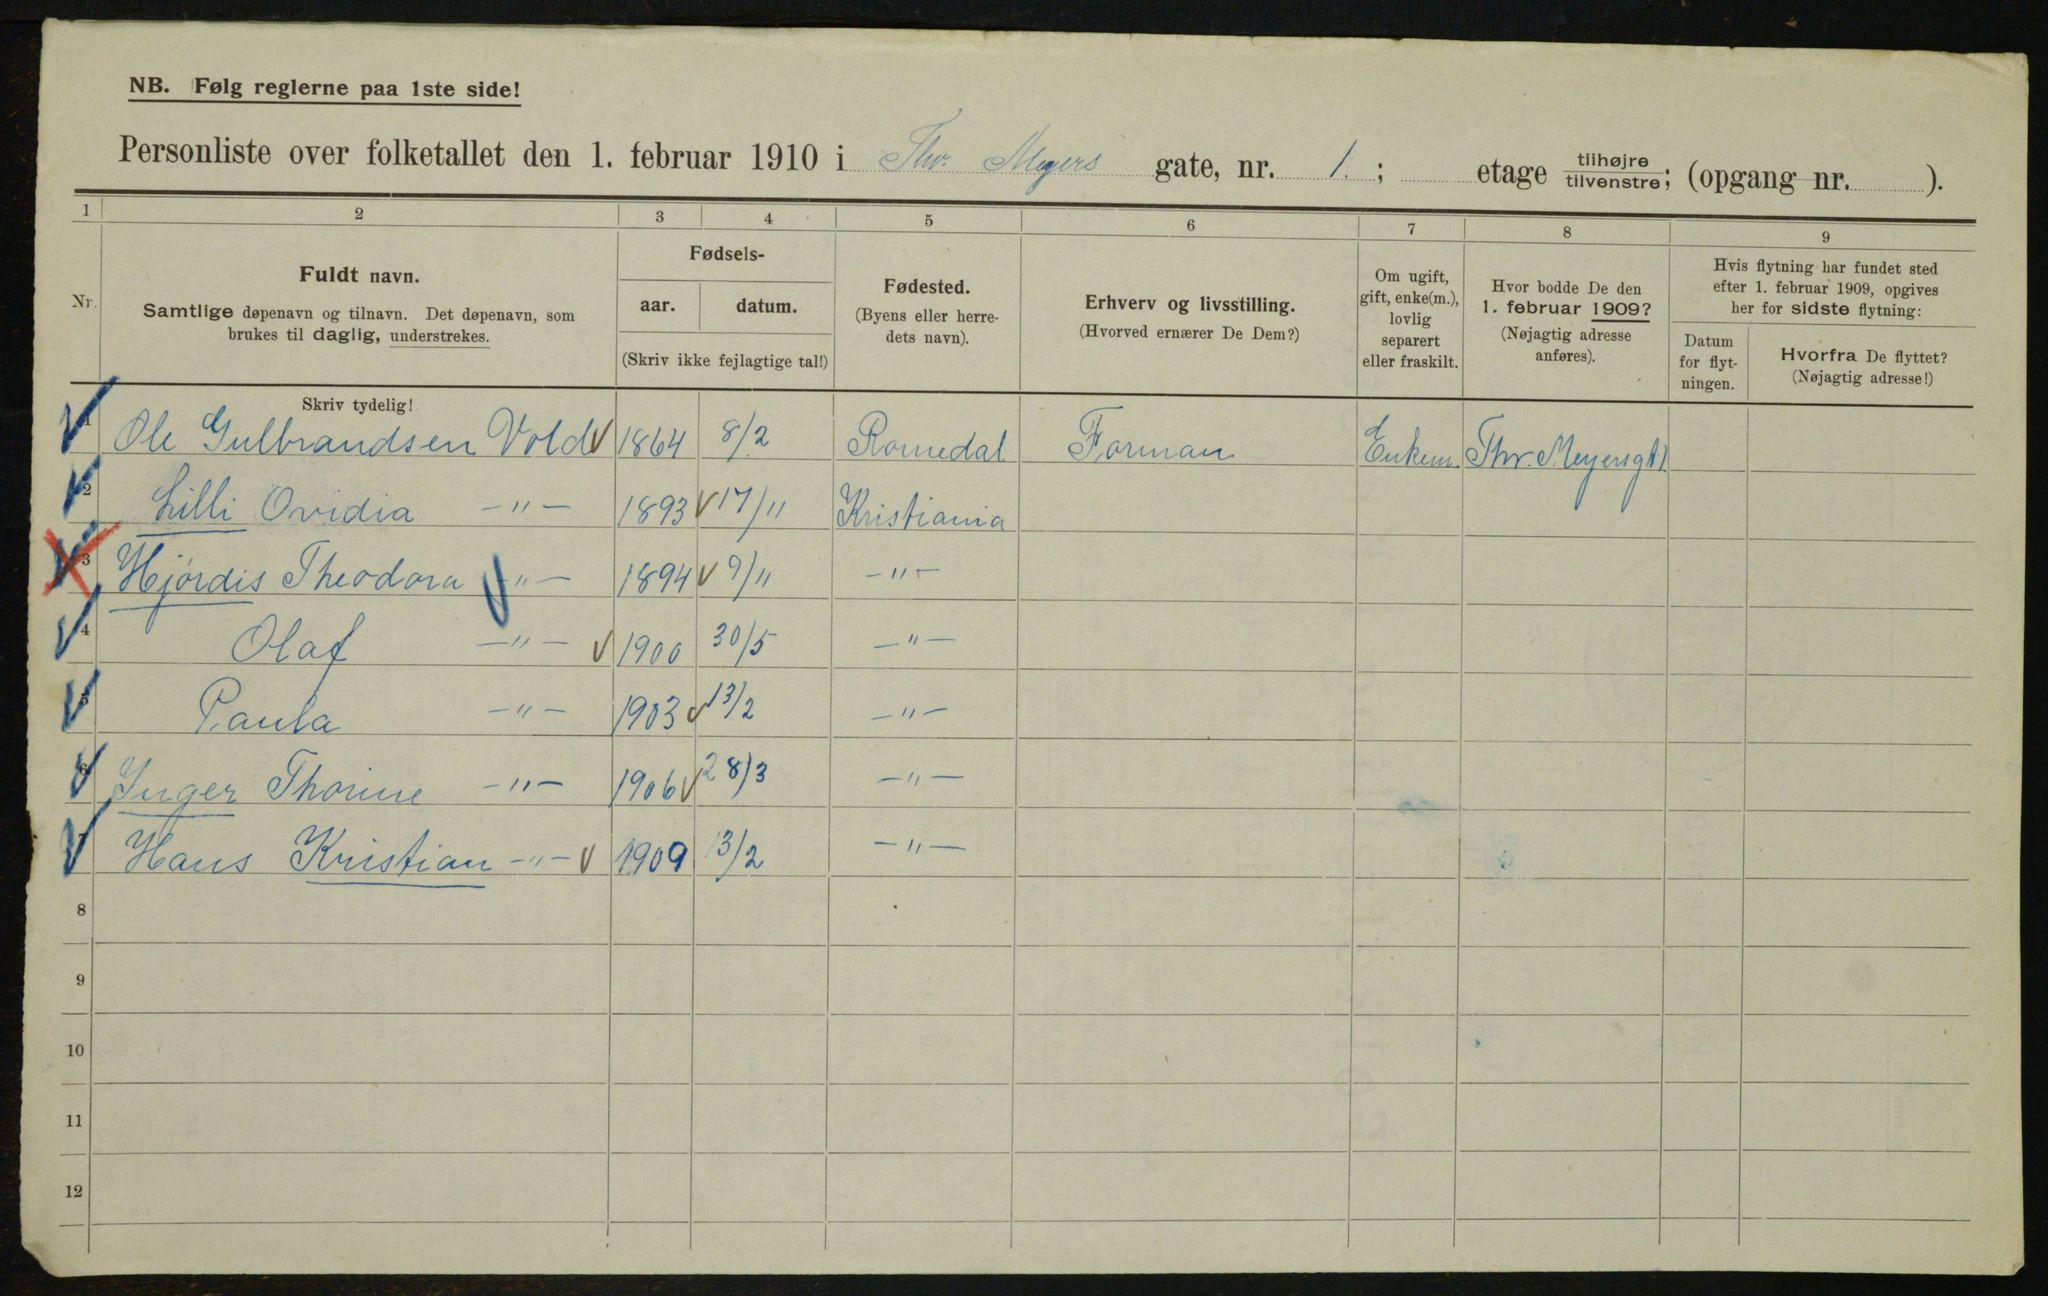 NB. Følg reglerne paa 1ste side!
Personliste over folketallet den 1. februar 1910 i Thv. Meyers gate, nr. 1. ; etage tilhøjre/tilvenstre; (opgang nr. ).
1 2 3 4 5 6 7 8 9
Nr.
Fuldt navn.
Samtlige døpenavn og tilnavn. Det døpenavn, som
brukes til daglig, understrekes.
Skriv tydelig!
Fødsels-
aar. datum.
(Skriv ikke fejlagtige tal!)
Fødested.
(Byens eller herre-
dets navn).
Erhverv og livsstilling.
(Hvorved ernærer De Dem?)
Om ugift,
gift, enke(m.),
lovlig
separert
eller fraskilt.
Hvor bodde De den
1. februar 1909?
(Nøjagtig adresse
anføres).
Hvis flytning har fundet sted
efter 1. februar 1909, opgives
her for sidste flytning:
Datum
for flyt-
ningen.
Hvorfra De flyttet?
(Nøjagtig adresse!)
1 Ole Gulbrandsen Vold 1864 8/2 Romedal Forman Enkem. Thv. Meyersgt 1
2 Lilli Ovidia -"- 1893 17/11 Kristiania
3 Hjórdis Theodora -"- 1894 9/11 -"-
4 Olaf -"- 1900 30/5 -"-
5 Paula -"- 1903 13/2 -"-
6 Inger Thorine -"- 1906 28/3 -"-
7 Hans Kristian -"- 1909 13/2 -"-
8
9
10
11
12